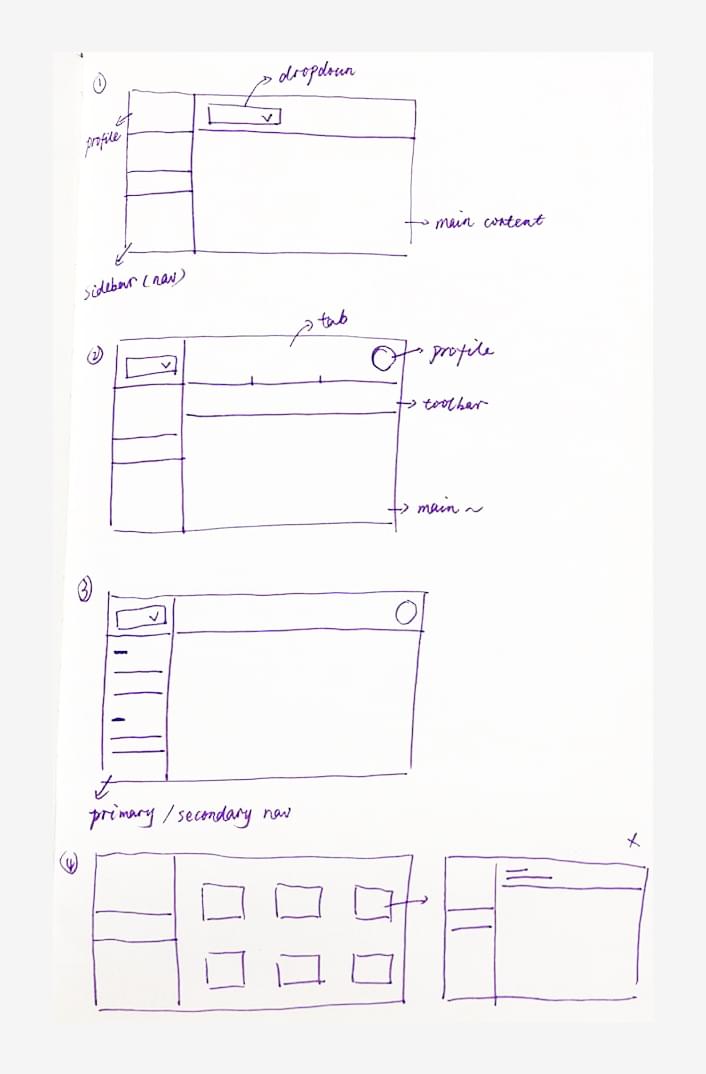 ①
dropdown
profile
main content
sidebar (nav)
②
tab
profile
toolbar
main ~
③
primary / secondary nav
④
x